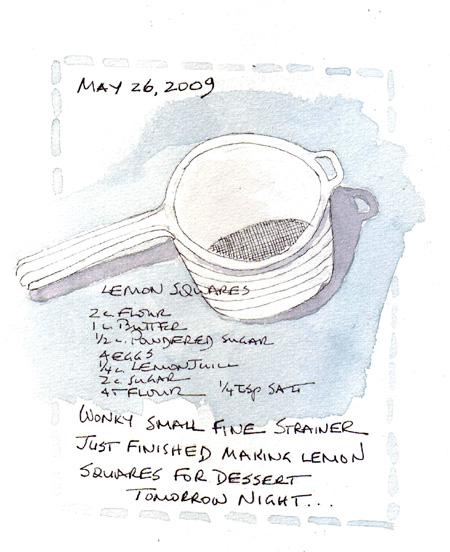 MAY 26, 2009
LEMON SQUARES
2 c. FLOUR
1 c. BUTTER
1/2 c. POWDERED SUGAR
4 EGGS
1/4 c. LEMON JUICE
2 c. SUGAR
4T FLOUR 1/4 tsp SALT
WONKY SMALL FINE STRAINER
JUST FINISHED MAKING LEMON
SQUARES FOR DESSERT
TOMORROW NIGHT...